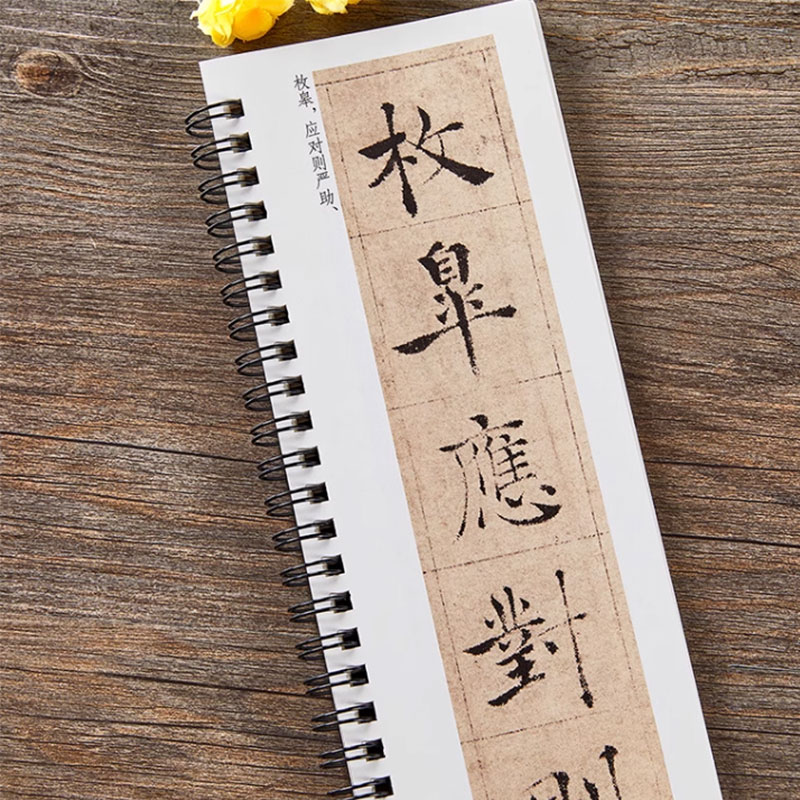 枚皋，应对则严助、
枚皋應對則